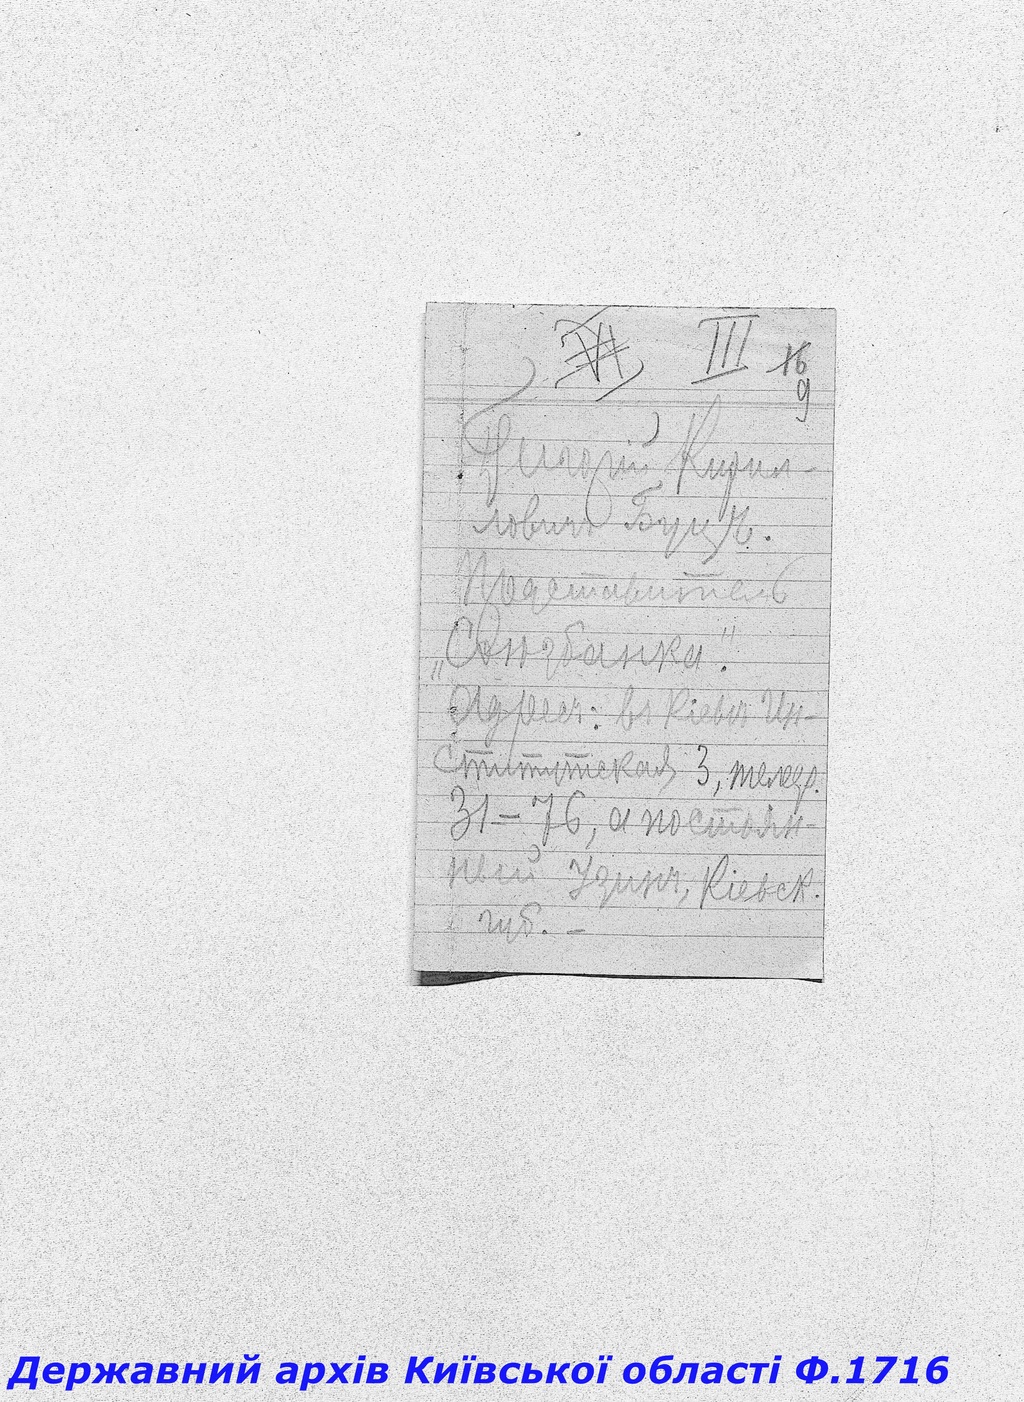 III 16
9
Георгій Кирил-
ловичъ Буцъ.
Представитель
„Союзбанка".
Адресъ: въ Кіевѣ Ин-
ститутская 3, телеф.
31=76, а постоян-
ный Узинъ, Кіевск.
губ. –
Державний архів Київської області Ф.1716